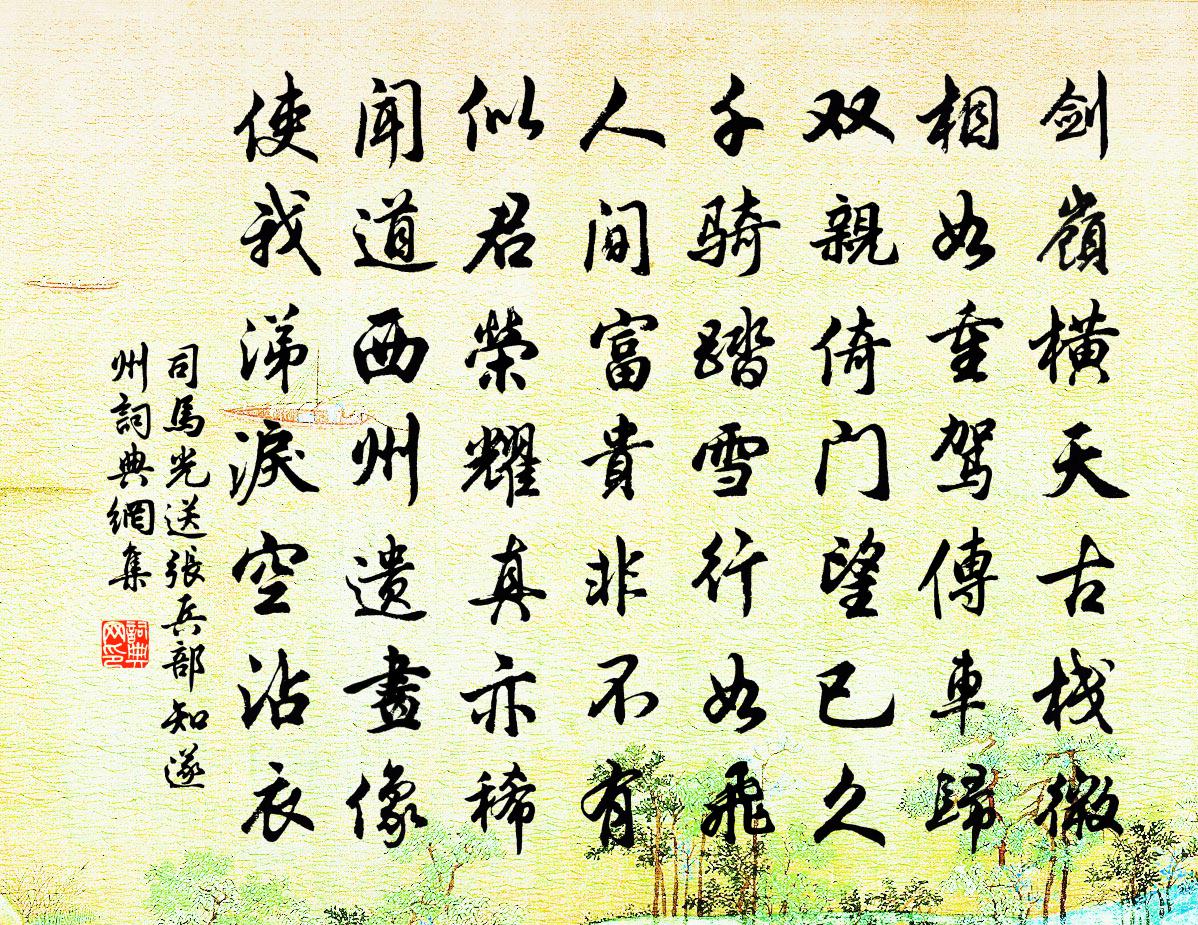 剑嶺橫天古栈微
相如重駕傳車歸
双親倚门望已久
千骑踏雪行如飛
人间富貴非不有
似君榮耀真亦稀
闻道西州遗畫像
使我涕淚空沾衣
司馬光送張兵部知遂
州詞典網集
詞典网印